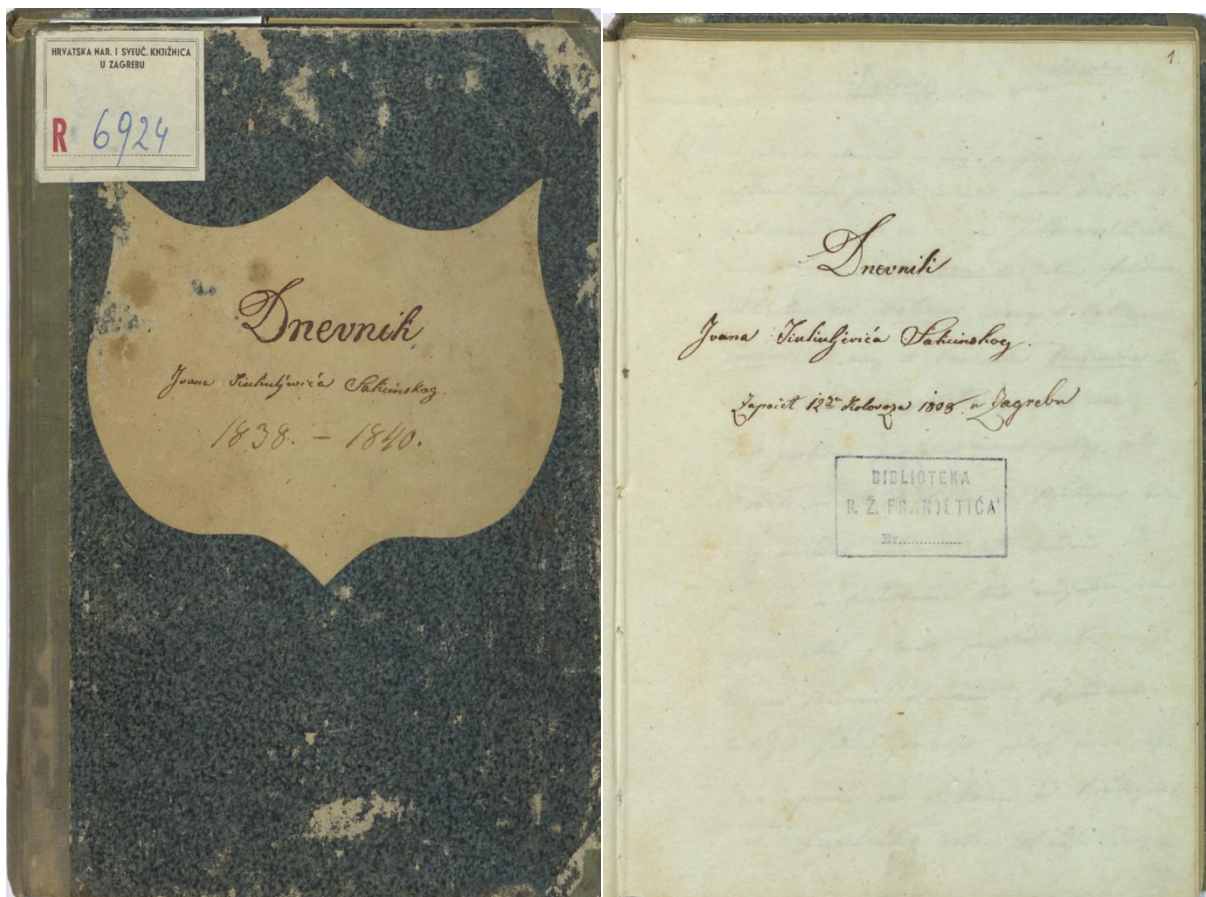 HRVATSKA NAR. I SVEUČ. KNJIŽNICA
U ZAGREBU
R 6924
Dnevnik
Ivana Kukuljevića Sakcinskog.
1838. – 1840.
1.
Dnevnik
Ivana Kukuljevića Sakcinskog.
Započet 12ga Kolovoza u Zagrebu
BIBLIOTEKA
R. Ž. FRANJETIĆA
Nr...............